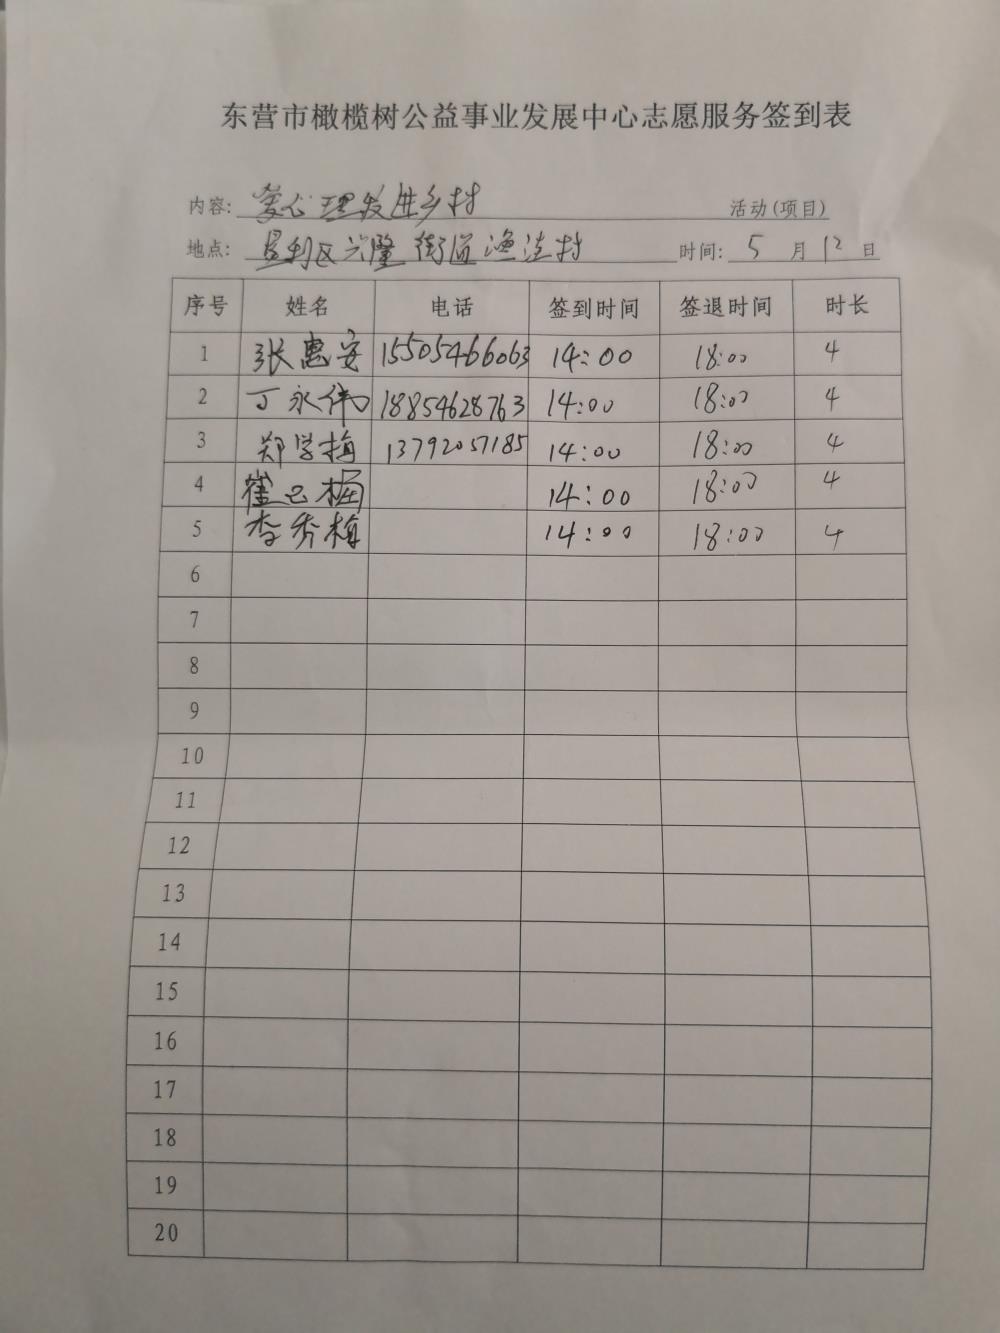 东营市橄榄树公益事业发展中心志愿服务签到表
内容: 爱心理发进乡村 活动(项目)
地点: 垦利区兴隆街道渔洼村 时间: 5 月 12 日
序号 姓名 电话 签到时间 签退时间 时长
1 张惠安 15505466063 14:00 18:00 4
2 丁永伟 18854628763 14:00 18:00 4
3 郑学梅 13792057185 14:00 18:00 4
4 崔 14:00 18:00 4
5 李秀梅 14:00 18:00 4
6
7
8
9
10
11
12
13
14
15
16
17
18
19
20